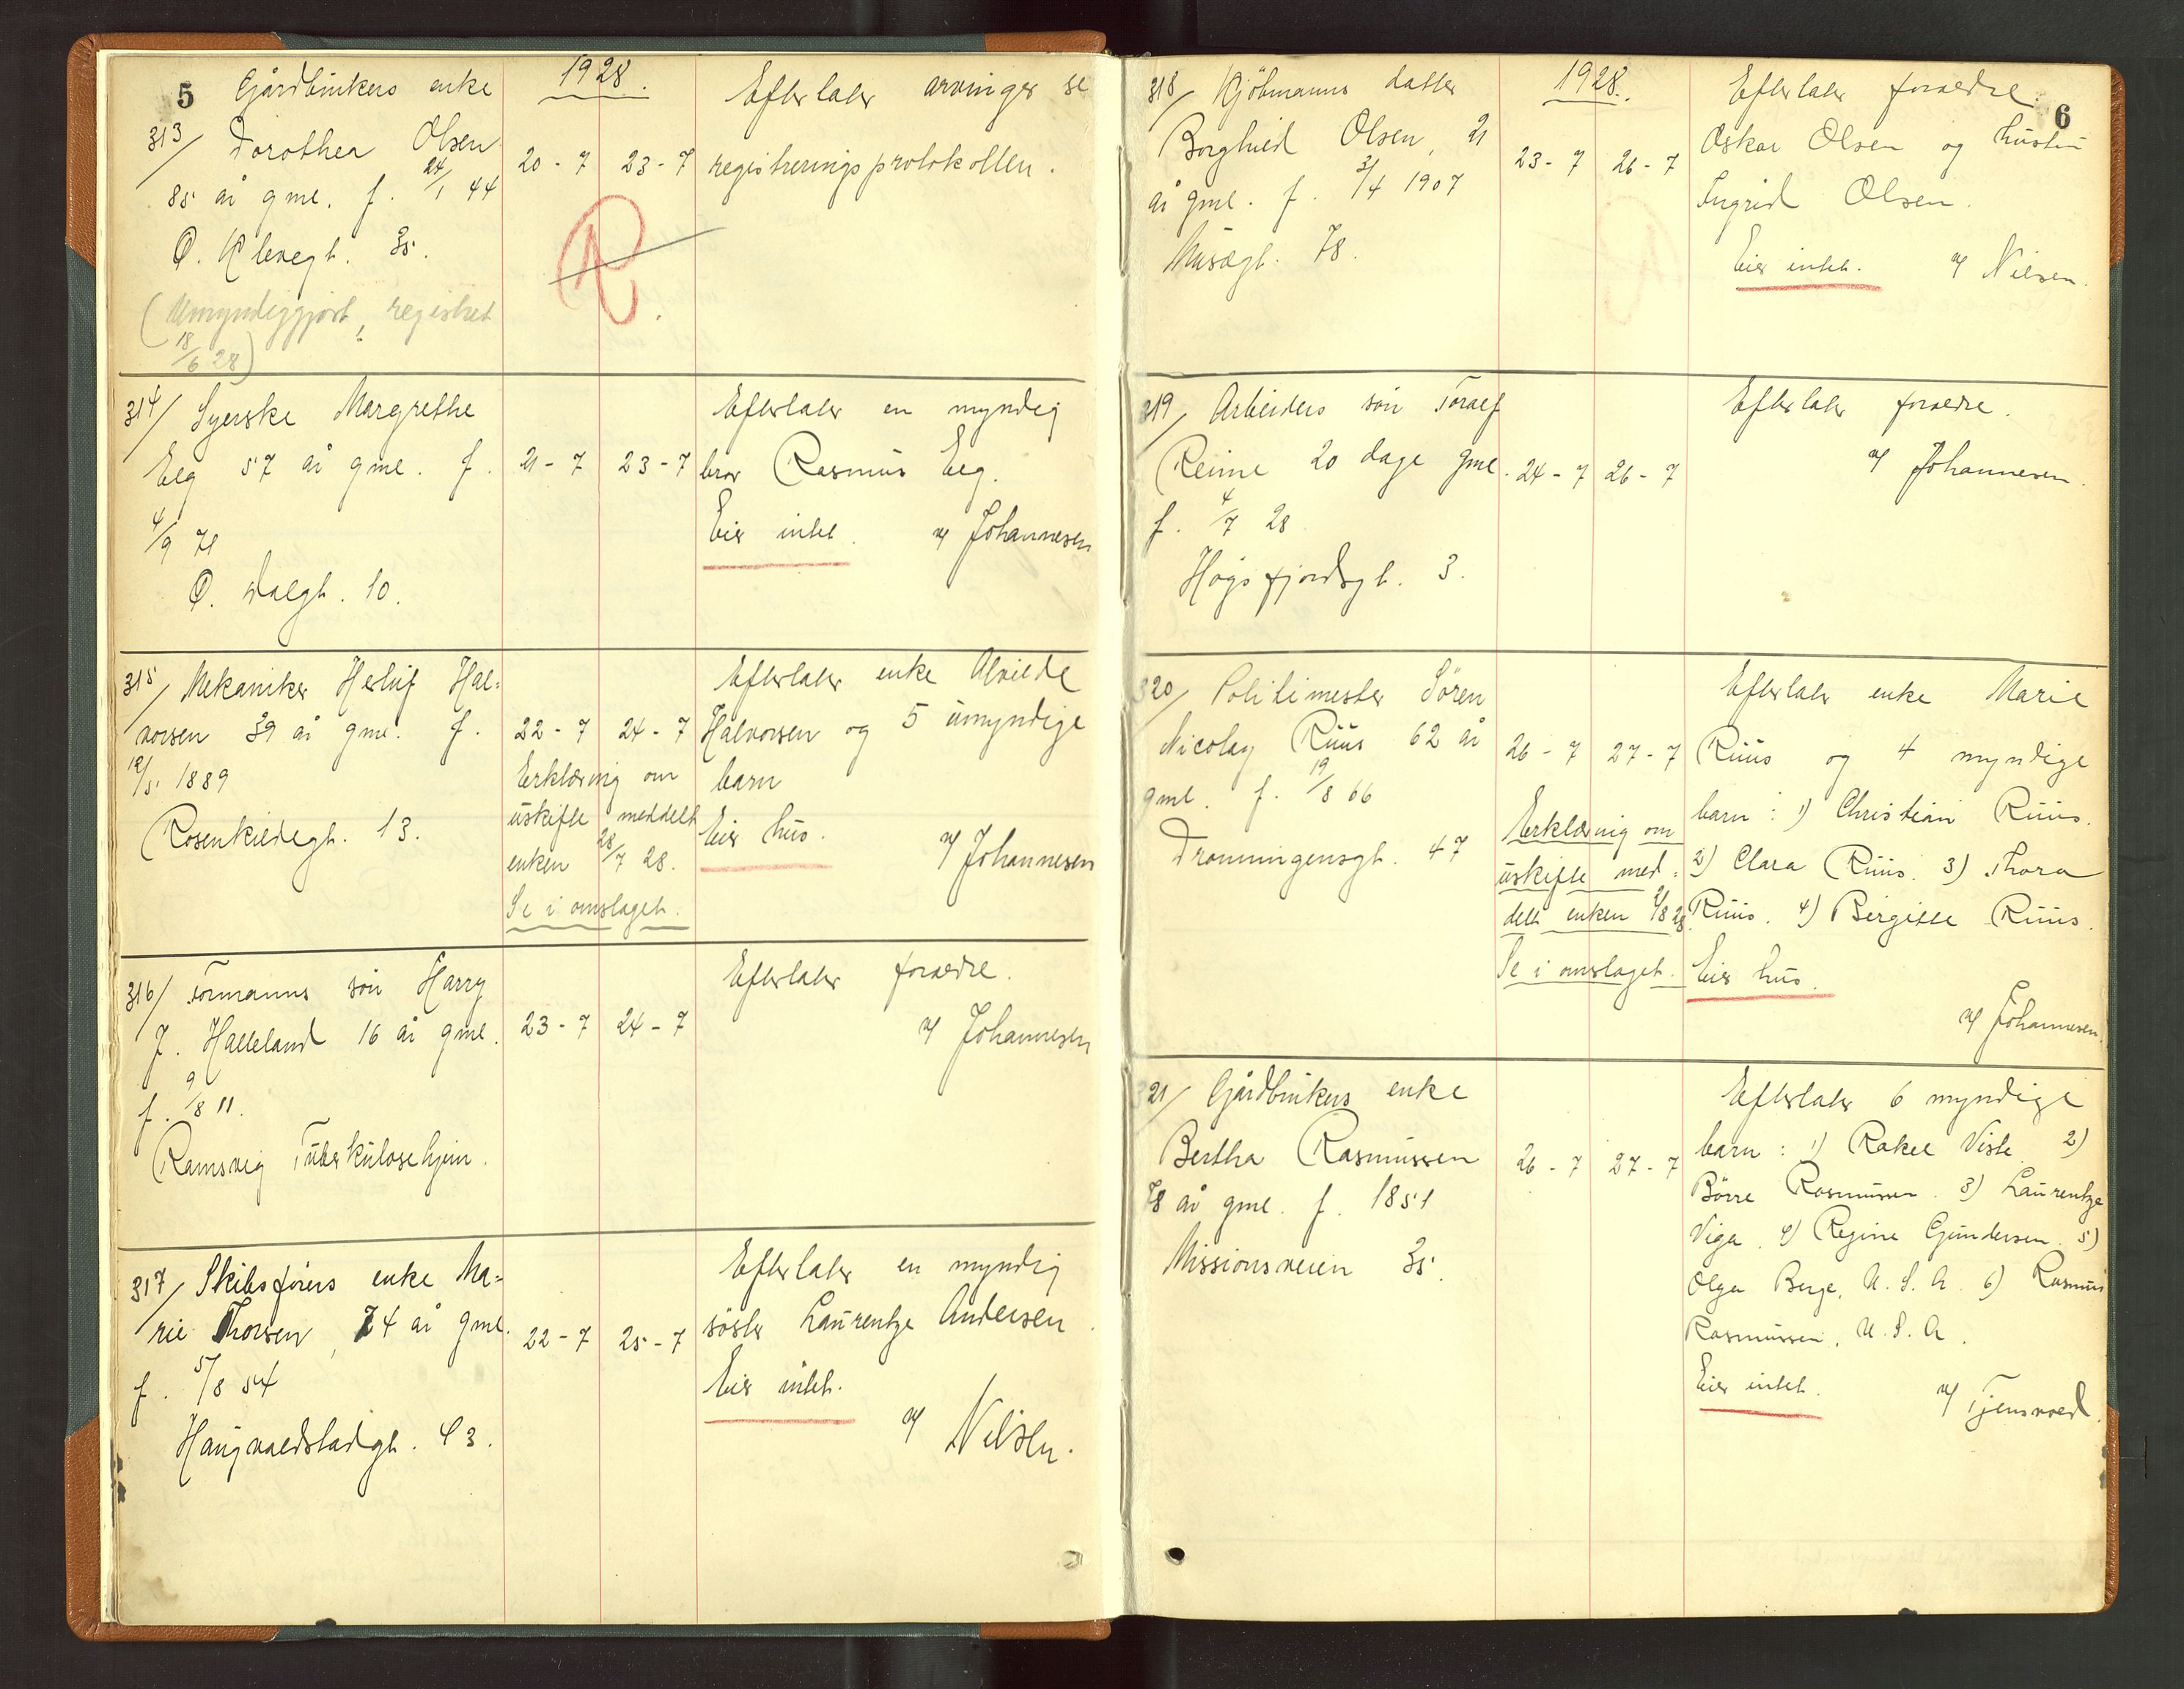 5
Gårdbrukers enke
313/ Dorothea Olsen
85 år gml. f. 24/1 44
Ø. Klevegt. 35.
(Umyndiggjort, registret
18/6 28)
1928.
20-7 23-7
Efterlater arvinger se
registreringsprotokollen.
R.
314/ Syerske Margrethe
Elg 57 år gml. f.
4/9 71
Ø. Dalgt. 10.
21-7 23-7
Efterlater en myndig
bror Rasmus Elg.
Eier intet. Johannesen
315/ Mekaniker Herluf Hal=
vorsen 39 år gml. f.
12/5 1889
Rosenkildegt. 13.
22-7 24-7
Erklæring om
uskifte meddelt
enken 28/7 28.
Se i omslaget.
Efterlater enke Alvilde
Halvorsen og 5 umyndige
barn
Eier hus.
Johannesen
316/ Formanns sön Harry
J. Halleland 16 år gml.
f. 9/8 11.
Ramsvig Tuberkulosehjem.
23-7 24-7
Efterlater foreldre.
Johannesen
317/ Skibsförers enke Ma=
rie Thorsen, 74 år gml.
f. 5/8 54
Haugvaldstadgt. 43.
22-7 25-7
Efterlater en myndig
söster Laurentze Andersen.
Eier intet.
Nilsen.
6
318/ Kjöbmanns datter
Borghild Olsen, 21
år gml. f. 3/4 1907
Musægt. 78.
1928.
23-7 26-7
Efterlater foreldre:
Oskar Olsen og hustru
Ingrid Olsen.
Eier intet. Nilsen.
319/ Arbeiders sön Toralf
Reime 20 dage gml.
f. 4/7 28
Högsfjordsgt. 3.
24-7 26-7
Efterlater foreldre.
Johannesen.
320/ Politimester Sören
Nicolay Ruus 62 år
gml. f. 19/8 66
Dronningensgt. 47
26-7 27-7
Erklæring om
uskifte med=
delt enken 2/8 28.
Se i omslaget.
Efterlater enke Marie
Ruus og 4 myndige
barn: 1) Christian Ruus.
2) Clara Ruus. 3) Thora
Ruus. 4) Birgitte Ruus.
Eier hus.
Johannesen.
321/ Gårdbrukers enke
Bertha Rasmussen
78 år gml. f. 1851
Missionsveien 35.
26-7 27-7
Efterlater 6 myndige
barn: 1) Rakel Viste 2)
Börre Rasmussen. 3) Laurentze
Viga. 4) Regine Gundersen. 5)
Olga Berge, U.S.A. 6) Rasmus
Rasmussen, U.S.A.
Eier intet.
Tjensvold.